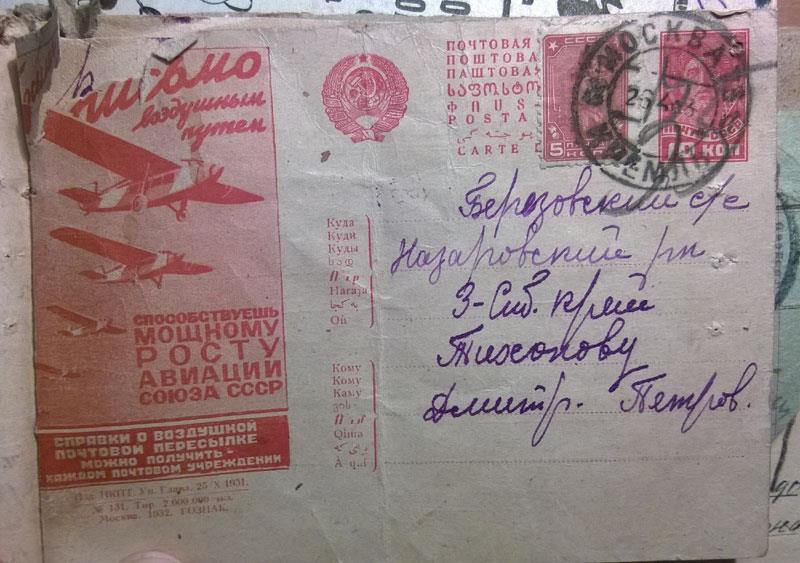 письмо
воздушным
путем
СПОСОБСТВУЕШЬ
МОЩНОМУ
РОСТУ
АВИАЦИИ
СОЮЗА СССР
СПРАВКИ О ВОЗДУШНОЙ
ПОЧТОВОЙ ПЕРЕСЫЛКЕ
МОЖНО ПОЛУЧИТЬ -
КАЖДОМ ПОЧТОВОМ УЧРЕЖДЕНИИ
Изд. НКПТ. Уп. Главл. 25/X 1931.
№ 131. Тир. 2.000.000 экз.
Москва. 1932. ГОЗНАК.
ПОЧТОВАЯ
ПОШТОВА
ПАШТОВА
ՓՈՍՏ
POSTA
CARTE
5
КОП
МОСКВА
КОП
Куда
Куди
Куды
Haraza
Кому
Кому
Каму
Qima
Березовский с/с
Назаровский р-н
З-Сиб. край
Тихонову
Дмитр. Петров.